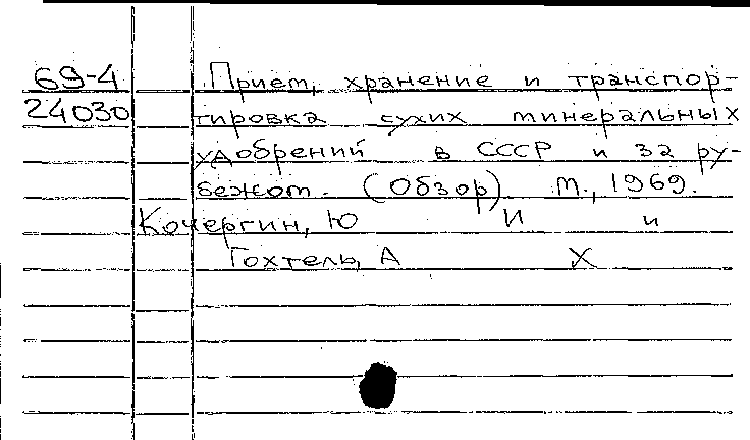 69-4 Прием, хранение и транспор-
24030 тировка сухих минеральных
удобрений в СССР и за ру-
бежом. (Обзор) М., 1969.
Кочергин, Ю И и
Гохтель, А Х